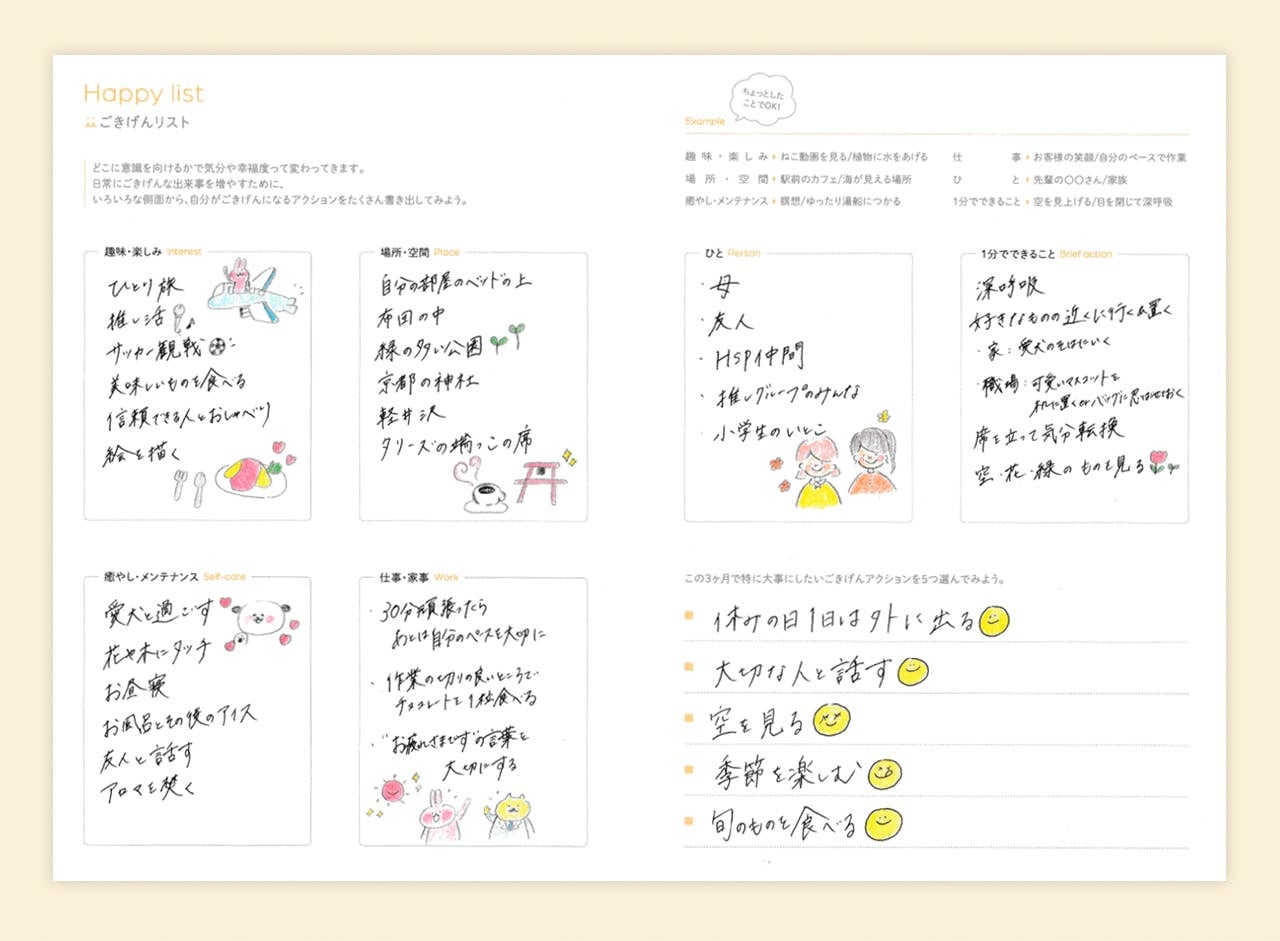 Happy list
ごきげんリスト
どこに意識を向けるかで気分や幸福度って変わってきます。
日常にごきげんな出来事を増やすために、
いろいろな側面から、自分がごきげんになるアクションをたくさん書き出してみよう。
ちょっとした
ことでOK!
Example
趣味・楽しみ ねこ動画を見る/植物に水をあげる
仕事 お客様の笑顔/自分のペースで作業
場所・空間 駅前のカフェ/海が見える場所
ひと 先輩の〇〇さん/家族
癒やし・メンテナンス 瞑想/ゆったり湯船につかる
1分でできること 空を見上げる/目を閉じて深呼吸
趣味・楽しみ Interest
ひとり旅
推し活
サッカー観戦
美味しいものを食べる
信頼できる人とおしゃべり
絵を描く
場所・空間 Place
自分の部屋のベッドの上
布団の中
緑の多い公園
京都の神社
軽井沢
タリーズの端っこの席
ひと Person
・母
・友人
・HSP仲間
・推しグループのみんな
・小学生のいとこ
1分でできること Brief action
深呼吸
好きなものの近くに行く&置く
・家:愛犬のそばにいく
・職場:可愛いマスコットを
机に置くorバッグに忍ばせておく
席を立って気分転換
空・花・緑のものを見る
癒やし・メンテナンス Self-care
愛犬と過ごす
花や木にタッチ
お昼寝
お風呂とその後のアイス
友人と話す
アロマを焚く
仕事・家事 Work
・30分頑張ったら
あとは自分のペースを大切に
・作業の切りの良いところで
チョコレートを1粒食べる
・"お疲れさまです"の言葉を
大切にする
この3ヶ月で特に大事にしたいごきげんアクションを5つ選んでみよう。
休みの日1日は外に出る
大切な人と話す
空を見る
季節を楽しむ
旬のものを食べる